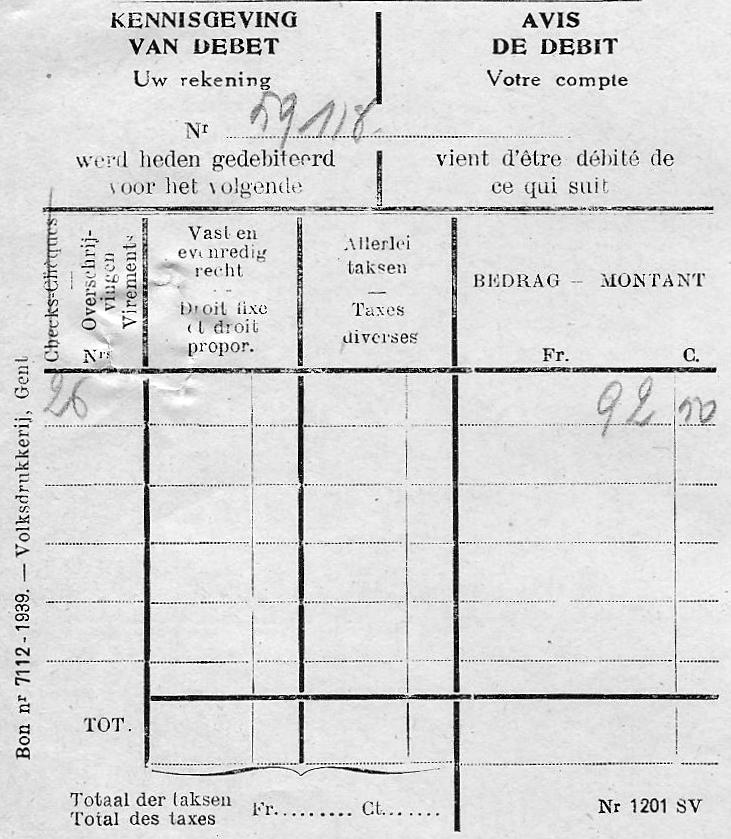 KENNISGEVING
VAN DEBET
Uw rekening
AVIS
DE DEBIT
Votre compte
Nr 59118
werd heden gedebiteerd
voor het volgende
vient d'être débité de
ce qui suit
Checks-Chèques
Overschrij-
vingen
Virements
Nrs
Vast en
evenredig
recht
Droit fixe
et droit
propor.
Allerlei
taksen
—
Taxes
diverses
BEDRAG – MONTANT
Fr. C.
26 92 50
TOT.
Totaal der taksen
Total des taxes
Fr......... Ct.......
Nr 1201 SV
Bon nr 7112 - 1939. — Volksdrukkerij, Gent